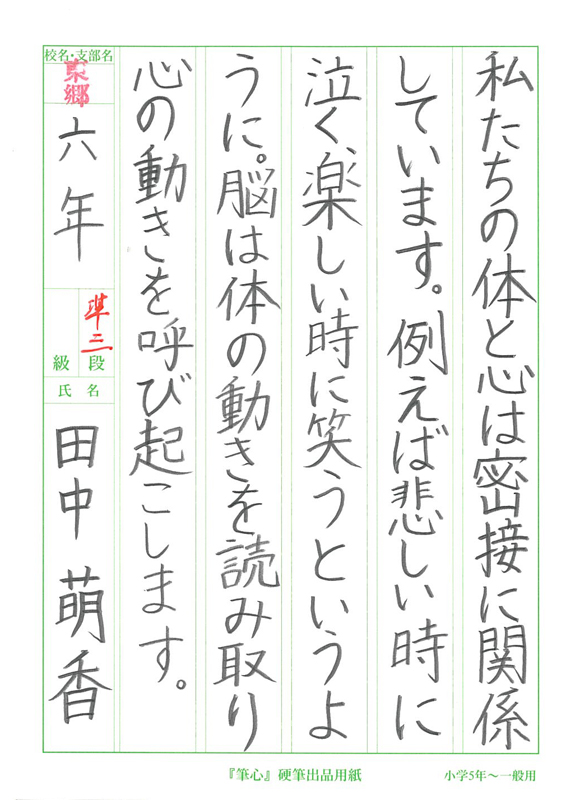 私たちの体と心は密接に関係
しています。例えば悲しい時に
泣く、楽しい時に笑うというよ
うに。脳は体の動きを読み取り
心の動きを呼び起こします。
校名・支部名
東郷
六年
準二
段
級
氏名
田中萌香
『筆心』硬筆出品用紙
小学5年～一般用